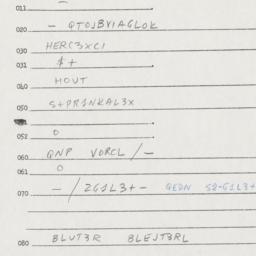 011
020 - QTOJBVIAGLOK
030 HERC3XC1
031 $+
040 HOUT
050 S+PR1NKAL3X
052 O
060 QNP VORCL /-
061 O
070 - / ZG1L3+- QEDN S2-G1L3+
080 BLUT3R BLEJT3RL